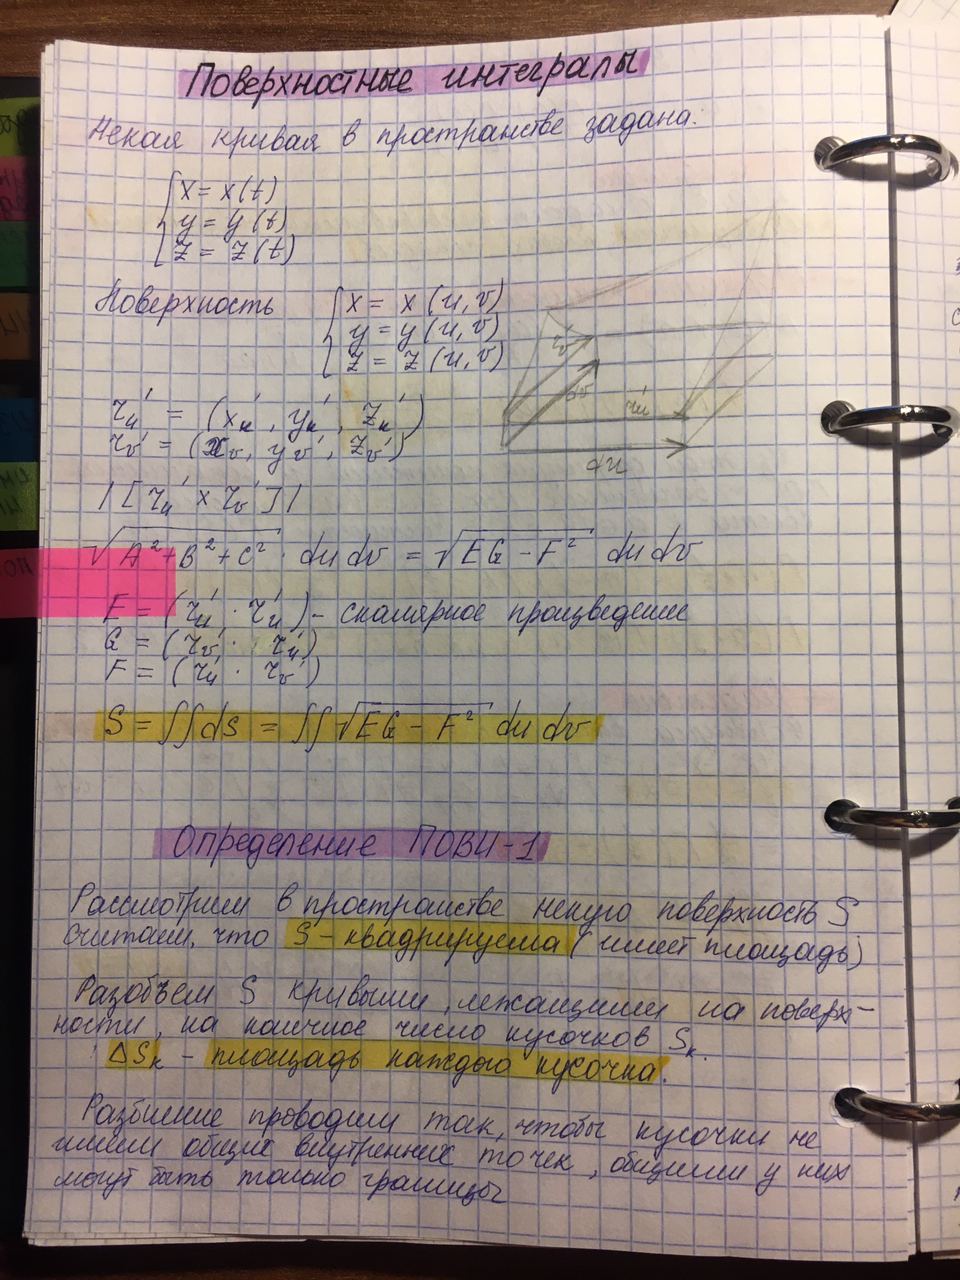 Поверхностные интегралы
Некая кривая в пространстве задана:
x = x(t)
y = y(t)
z = z(t)
Поверхность
x = x(u, v)
y = y(u, v)
z = z(u, v)
r'u = (x'u, y'u, z'u)
r'v = (x'v, y'v, z'v)
r'u
dv
du
|[r'u × r'v]|
√(A² + B² + C²) · du dv = √(EG − F²) du dv
E = (r'u · r'u) - скалярное произведение
G = (r'v · r'u)
F = (r'u · r'v)
S = ∬dS = ∬√(EG − F²) du dv
Определение ПОВИ-1
Рассмотрим в пространстве некую поверхность S.
Считаем, что S - квадрируема (имеет площадь)
Разобьем S кривыми, лежащими на поверх-
ности, на конечное число кусочков Sk.
ΔSk - площадь каждого кусочка.
Разбиение проводим так, чтобы кусочки не
имели общих внутренних точек, общими у них
могут быть только границы